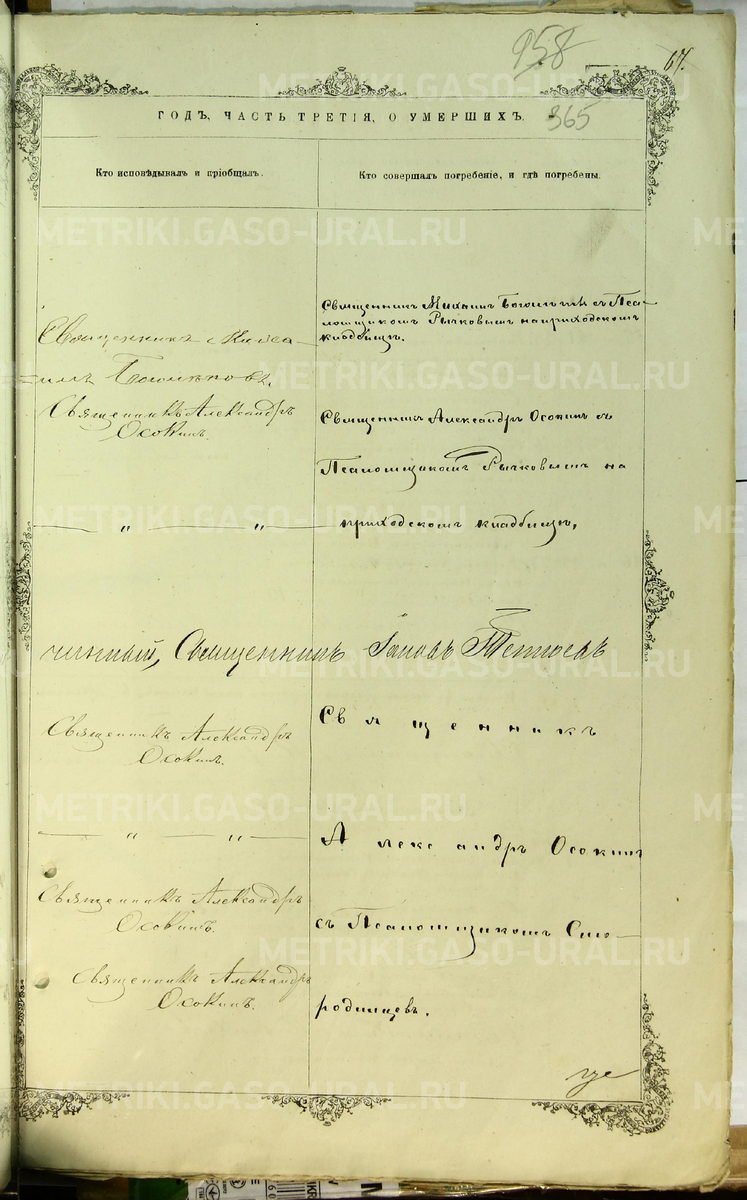 958
67.
ГОДЪ, ЧАСТЬ ТРЕТІЯ, О УМЕРШИХЪ.
365
Кто исповѣдывалъ и пріобщалъ.
Кто совершалъ погребеніе, и гдѣ погребены.
Священникъ Михаилъ
Священникъ Михаилъ съ Пса-
ломщикомъ Рычковымъ на приходскомъ
кладбищѣ.
Священникъ Александръ
Осокинъ.
Священникъ Александръ Осокинъ съ
Псаломщикомъ Рычковымъ на
— " — " —
приходскомъ кладбищѣ.
чинный, Священникъ
Священникъ Александръ
Осокинъ.
Священникъ
— " — " —
Александръ Осокинъ
Священникъ Александръ
Осокинъ.
съ Псаломщикомъ Смо-
Священникъ Александръ
Осокинъ.
родинцевъ.
METRIKI.GASO-URAL.RU